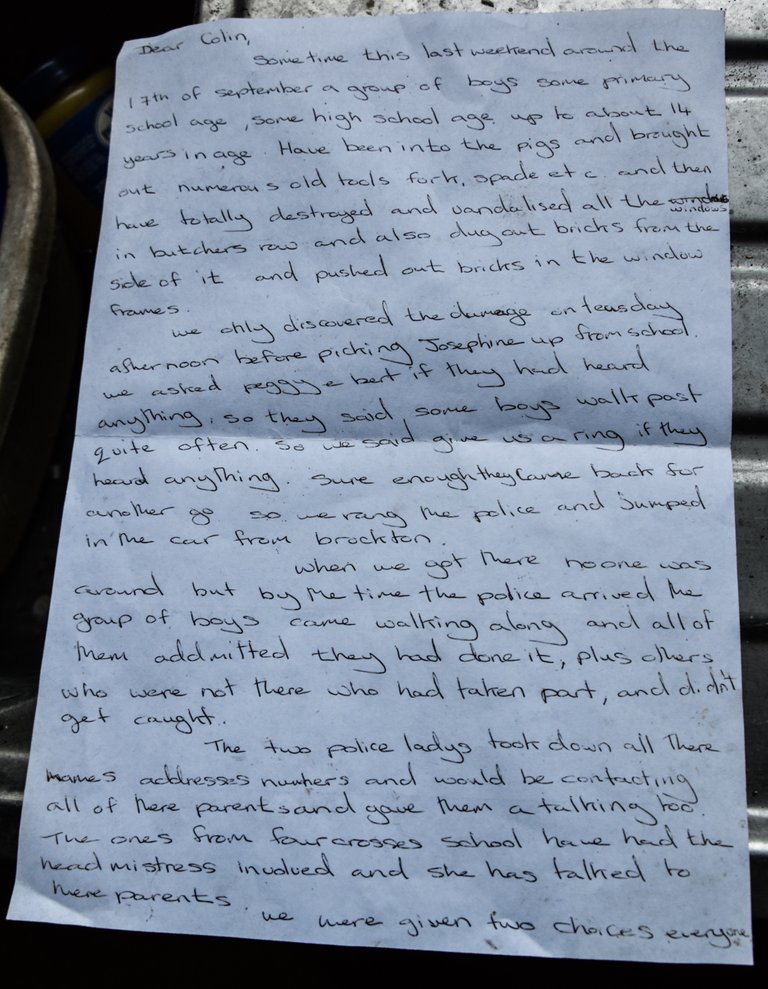 Dear Colin,
Sometime this last weekend around the
17th of september a group of boys some primary
school age, some high school age up to about 14
years in age. Have been into the pigs and brought
out numerous old tools fork, spade etc. and then
have totally destroyed and vandalised all the windows
windows
in butchers row and also dug out bricks from the
side of it and pushed out bricks in the window
frames.
we only discovered the damage on teusday
afternoon before picking Josephine up from school.
we asked peggy e bert if they had heard
anything, so they said some boys walk past
quite often. So we said give us a ring if they
heard anything. Sure enough they came back for
another go so we rang the police and jumped
in the car from brockton.
when we got there noone was
around but by the time the police arrived the
group of boys came walking along and all of
them addmitted they had done it, plus others
who were not there who had taken part, and didn't
get caught.
The two police ladys took down all there
names addresses numbers and would be contacting
all of here parents and gave them a talking too.
The ones from fourcrosses school have had the
headmistress involved and she has talked to
there parents.
we were given two choices everyone